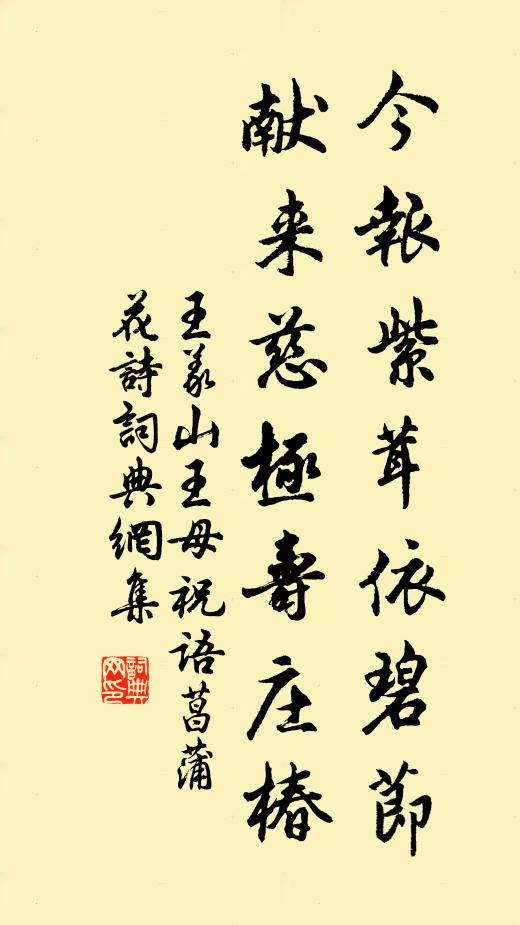 今報紫茸依碧節
献来慈極壽庄椿
王義山王母祝语菖蒲
花詩詞典網集
詞典网印